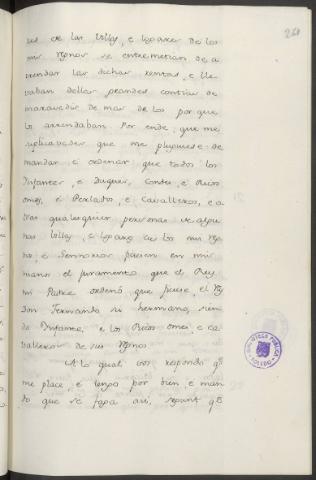 261
res de las Villas, e Logares de los
mis Regnos se entremetian de a
rrendar las dichas rentas, e lle
vaban dellas grandes contias de
maravedis de mas de los por que
las arrendaban. Por ende, que me
suplicavades que me pluguiese de
mandar, e ordenar que todos los
Infantes, e Duques, Condes, e Ricos
omes, e Perlados, e Cavalleros, e o
tras qualesquier personas de algu
nas Villas, e Logares de los mis Reg
nos, e Sennorios fuesen en mis
manos el juramento que el Rey
mi Padre ordenó que fuese, el Rey
Don Fernando su hermano, sien
do Infante, e los Ricos omes, e ca
valleros de sus Regnos.
A lo qual vos respondo qe
me place, e tengo por bien, e man
do que se faga asi, segunt qe
BIBLIOTECA PUBLICA
TOLEDO